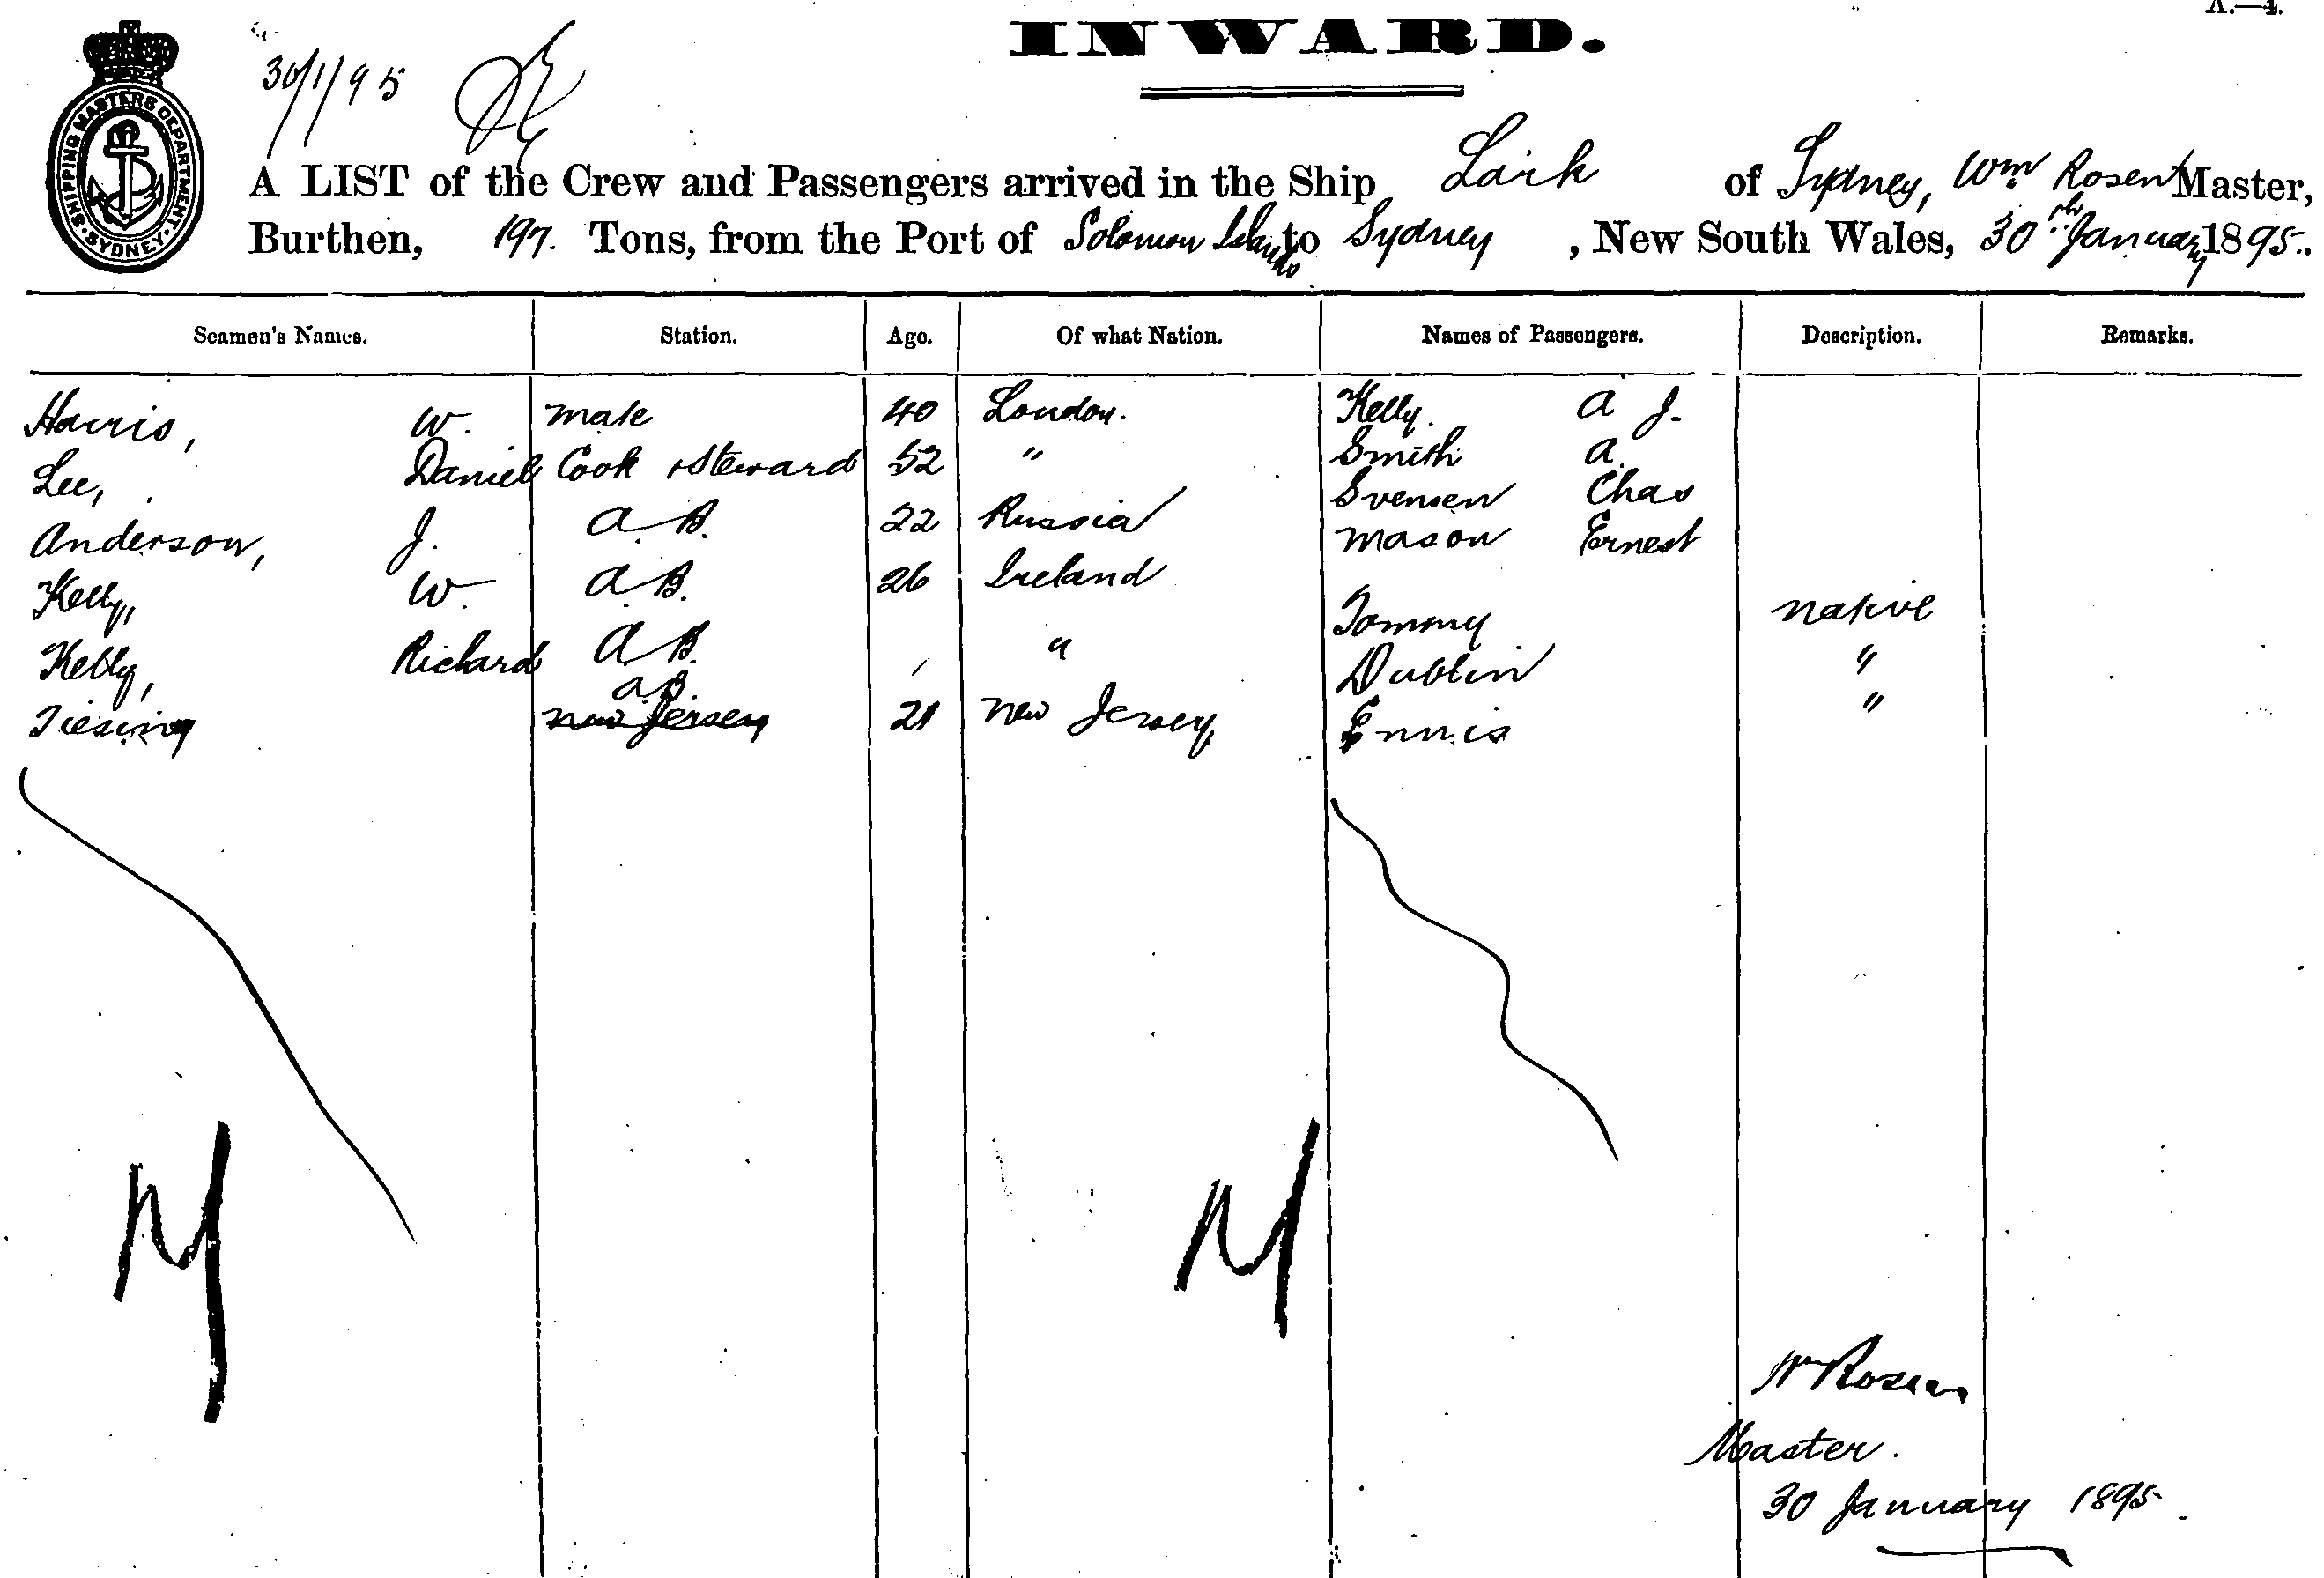 A.—4.
INWARD.
30/1/95
SHIPPING MASTERS DEPARTMENT · SYDNEY ·
A LIST of the Crew and Passengers arrived in the Ship Lark of Sydney, Wm Rosen Master,
Burthen, 197. Tons, from the Port of Solomon Islands to Sydney, New South Wales, 30th January 1895.
Seamen's Names. Station. Age. Of what Nation. Names of Passengers. Description. Remarks.
Harris, W. Mate 40 London. Kelly. A J.
Lee, Daniel Cook & Steward 52 " Smith A.
Svensen Chas
Anderson, J. A.B. 22 Russia Mason Ernest
Kelly, W. A.B. 26 Ireland
Tommy native
Kelly, Richard A B. " Dublin "
A.B.
Tiesing New Jersey 21 New Jersey Ennis "
M M
Wm Rosen
Master.
30 January 1895.